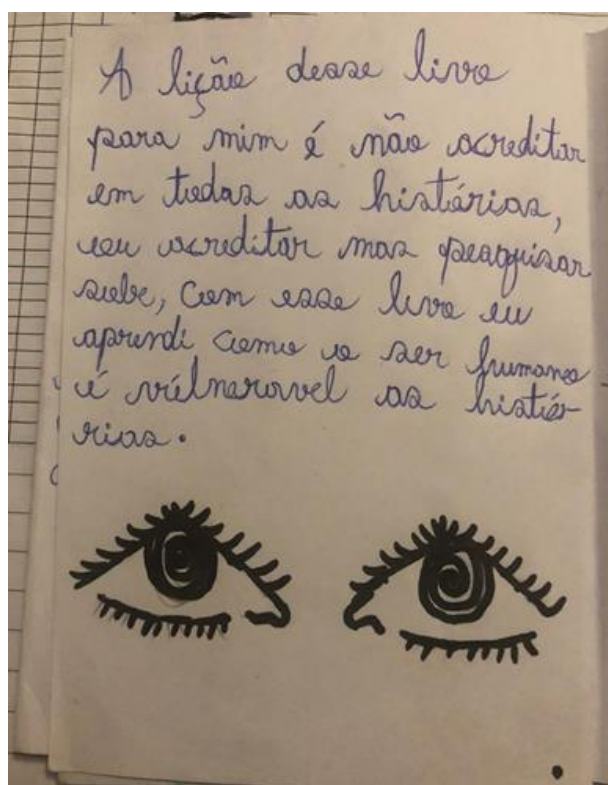 A lição desse livro
para mim é não acreditar
em todas as histórias,
ou acreditar mas pesquisar
sobe, com esse livro eu
aprendi como o ser humano
é vúlneravel as histór-
rias.